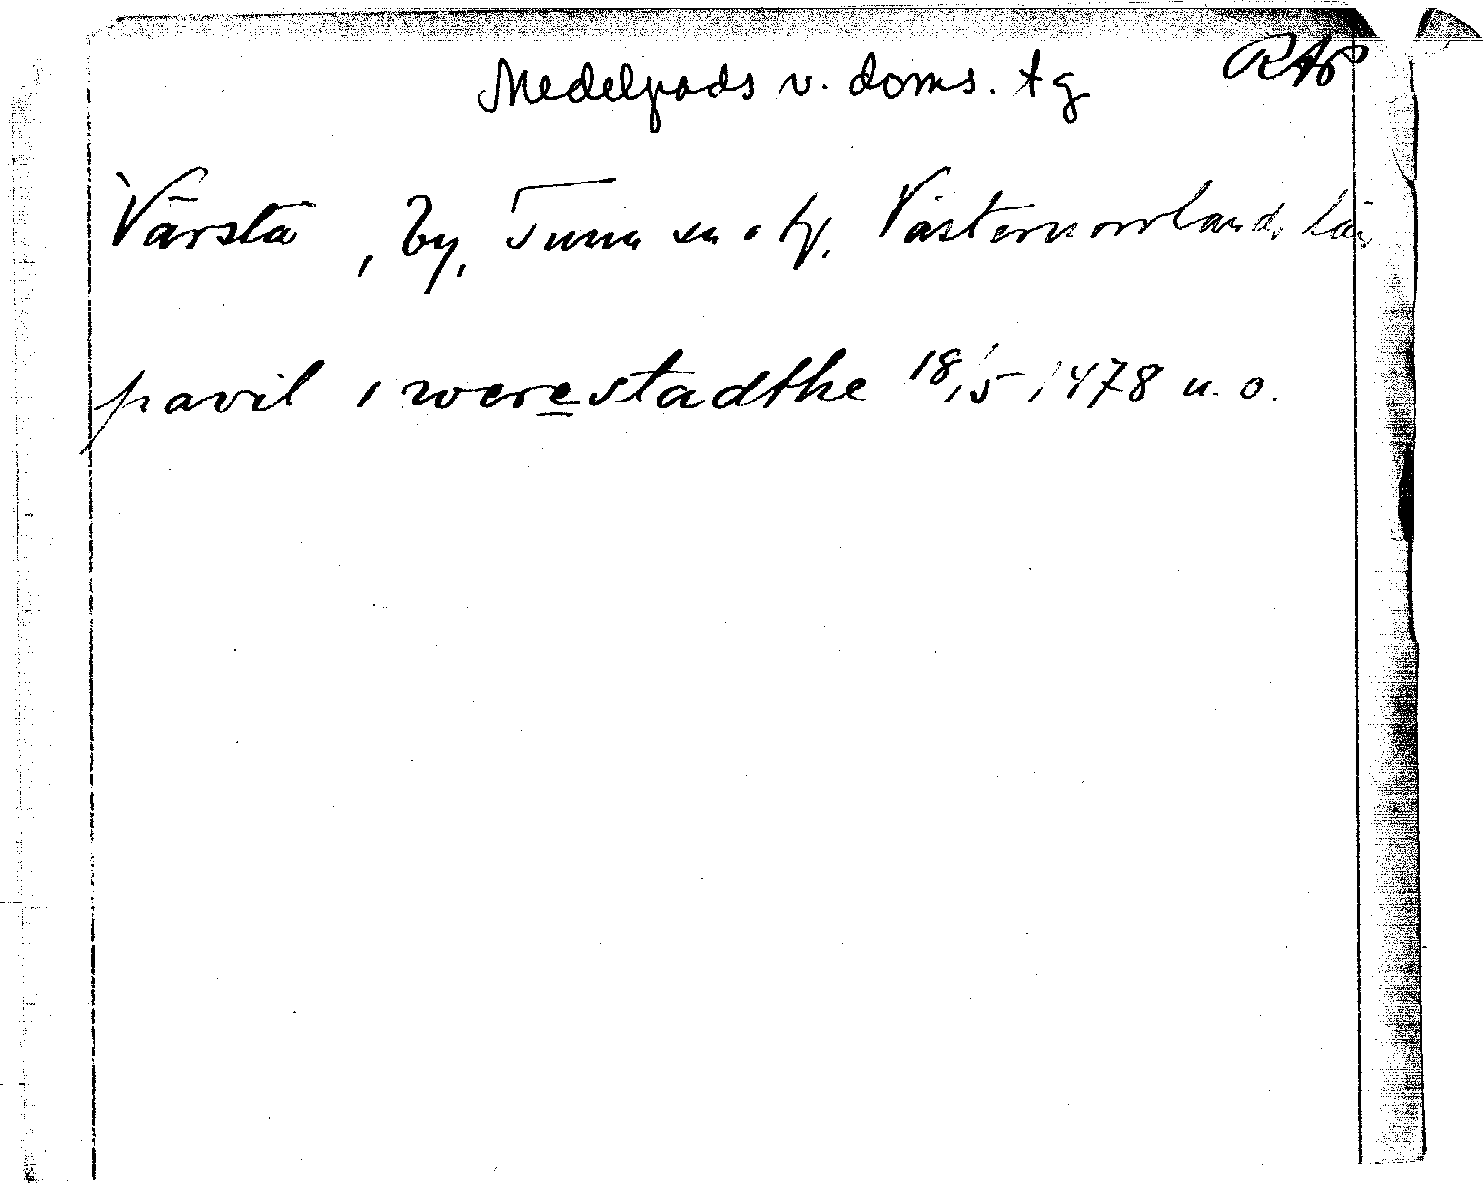 Medelpads v. doms. tg RAP
Värsta, by, Tuna sn o tg, Västernorrlands län
pavil i werestadthe 18/5 1478 u. o.